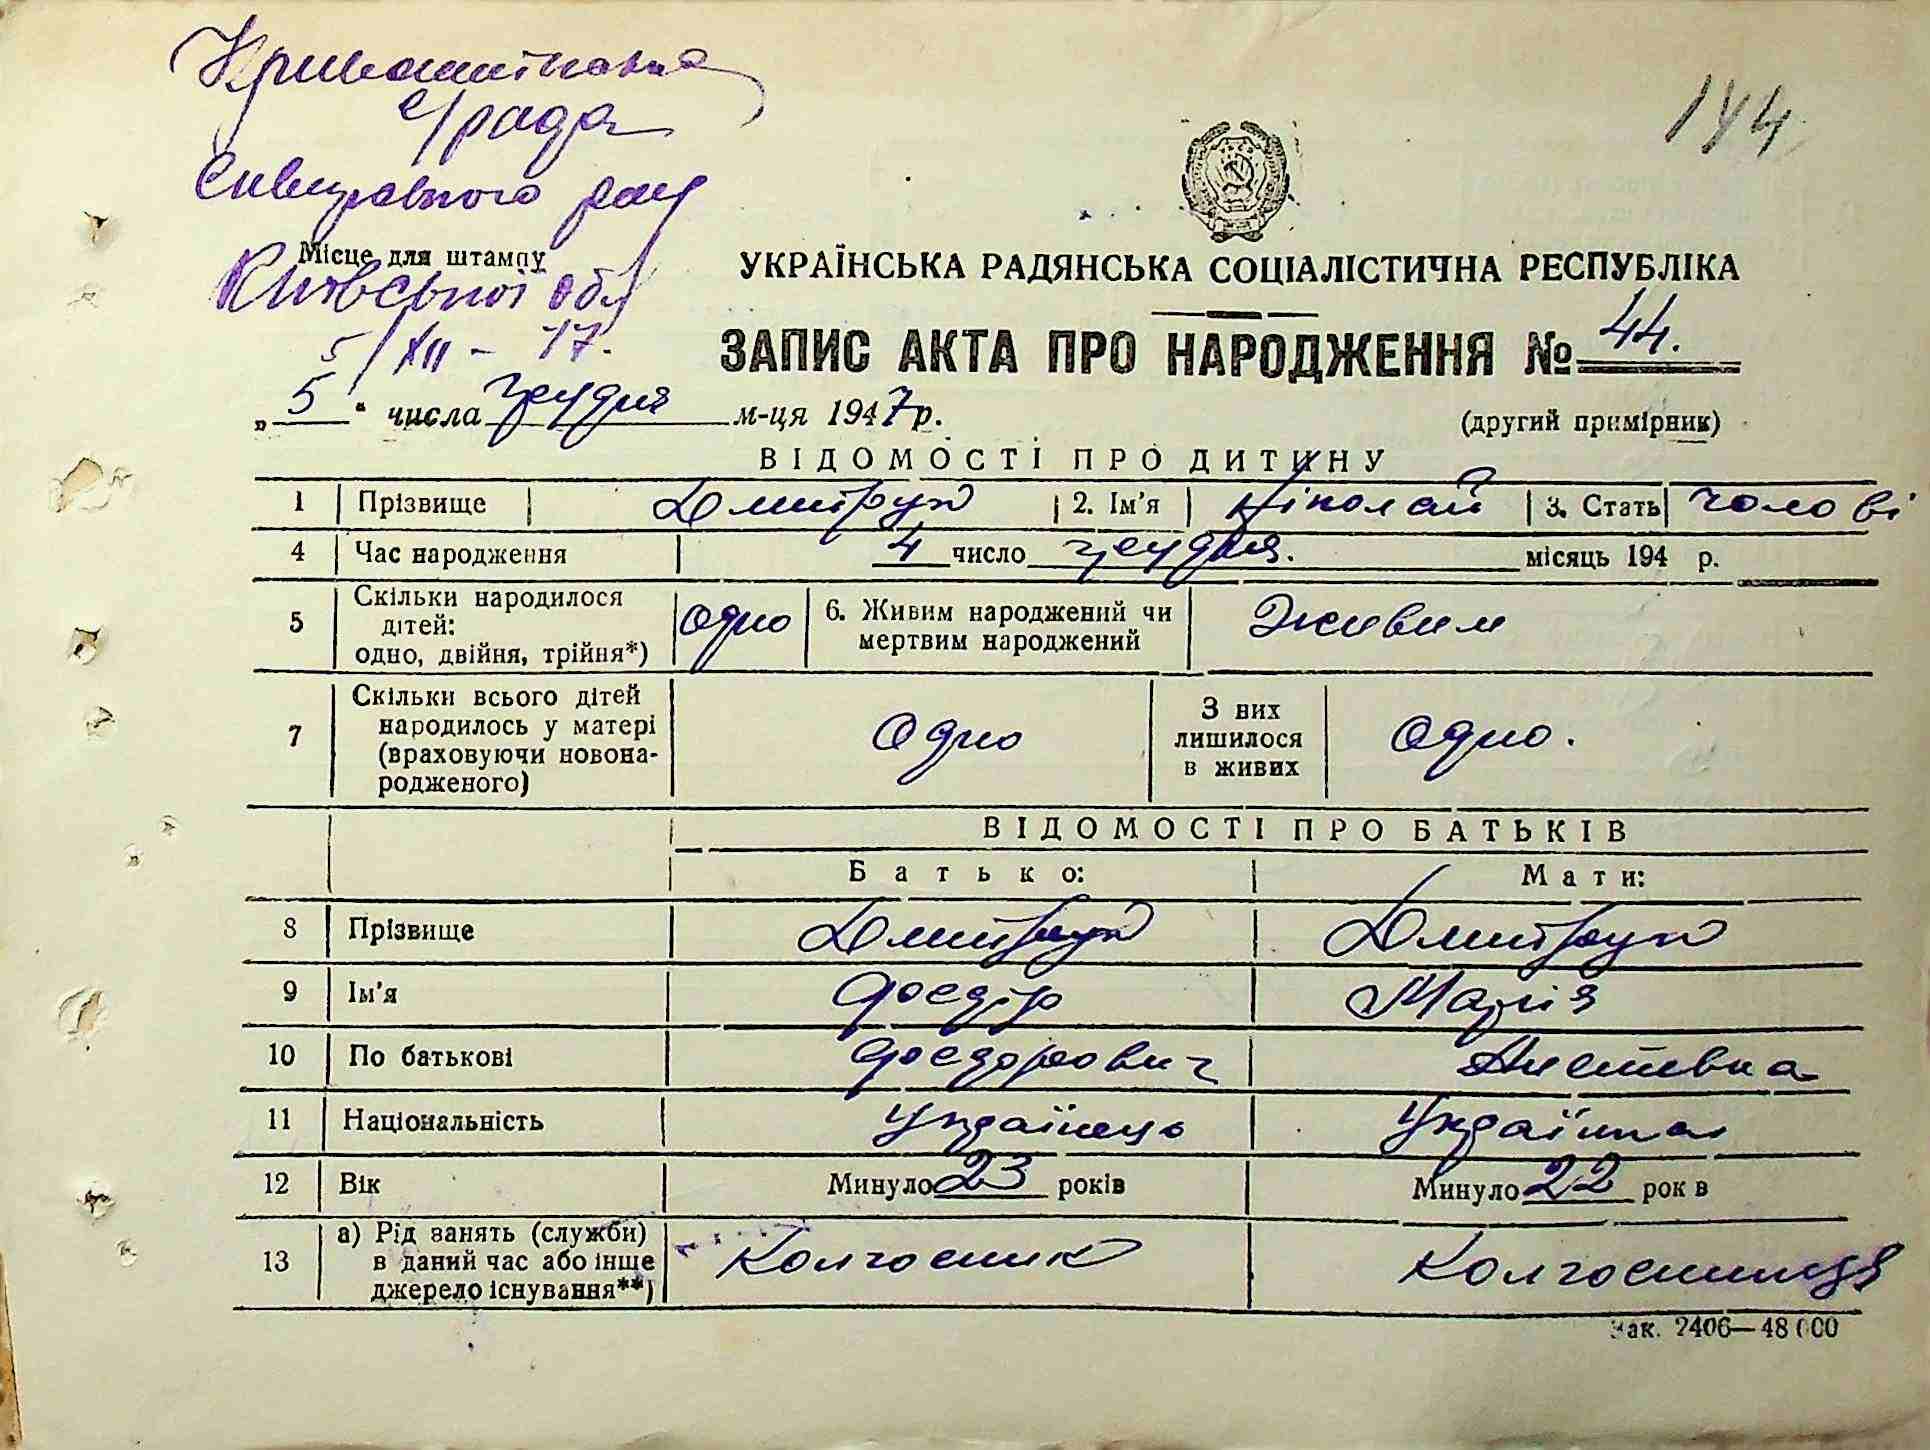 Кривошиїнська
с/рада
Сквирського рай
Місце для штампу
Київської обл
5/XII - 47.
144
УКРАЇНСЬКА РАДЯНСЬКА СОЦІАЛІСТИЧНА РЕСПУБЛІКА
ЗАПИС АКТА ПРО НАРОДЖЕННЯ № 44.
„ 5 “ числа грудня м-ця 1947 р.
(другий примірник)
ВІДОМОСТІ ПРО ДИТИНУ
1 Прізвище Дмитрук 2. Ім'я Ніколай 3. Стать чолові
4 Час народження 4 число грудня. місяць 194 р.
5 Скільки народилося дітей: одно, двійня, трійня*) одно 6. Живим народжений чи мертвим народжений Живим
7 Скільки всього дітей народилось у матері (враховуючи новона-родженого) Одно З них лишилося в живих одно.
ВІДОМОСТІ ПРО БАТЬКІВ
Батько: Мати:
8 Прізвище Дмитрук Дмитрук
9 Ім'я Феодір Марія
10 По батькові Феодорович
11 Національність Українець Українка
12 Вік Минуло 23 років Минуло 22 рок в
13 а) Рід занять (служби) в даний час або інше джерело існування**) Колгосник Колгосниця
Зак. 2406—48 000